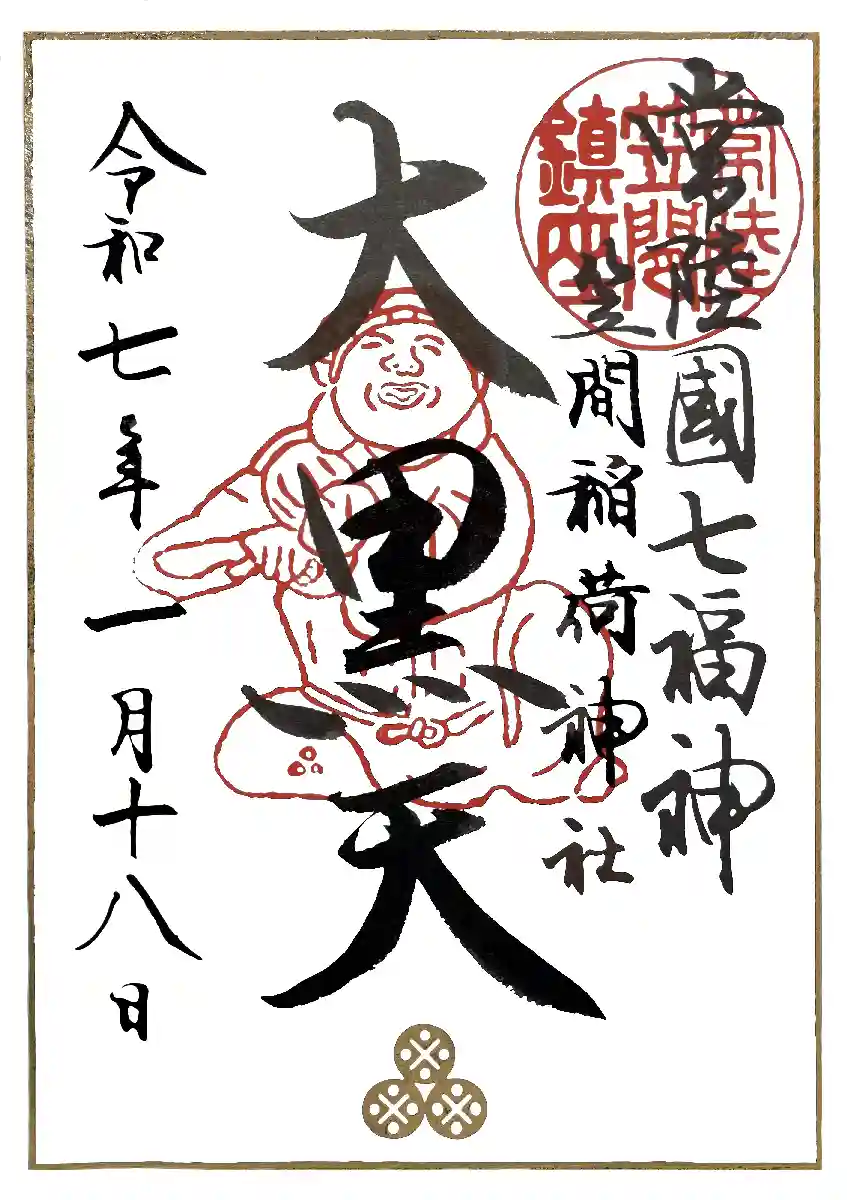 常陸國七福神
笠間稲荷神社
常陸
笠間
鎮座
大黒天
令和七年一月十八日